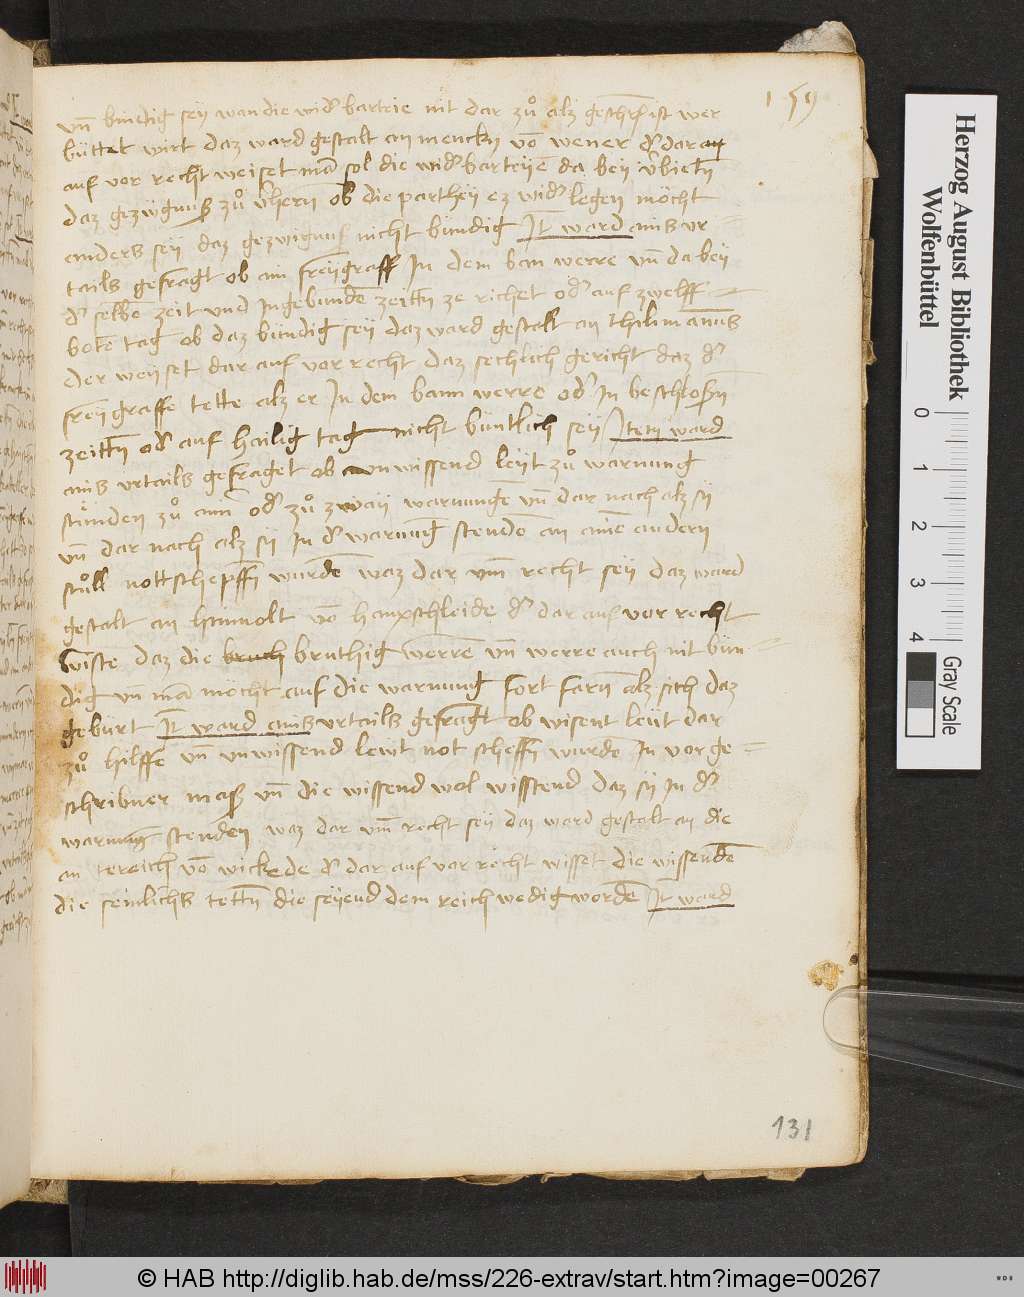 1 59
vn̄ bindig sey wan die wid᷑ barteie nit dar zů alz geschr̄ ist wer
büttet wirt daz ward gestalt an mencken vō wener d᷑ dar an
auf vor recht weiset mā sol die wid᷑ barteiyē da bey v̄bietn̄
daz gezwgnuß zů v̄hern̄ ob die parthey ez wid᷑ legen möcht
anders sey daz gezwignuß nicht bündig Jt̄ ward ains vr
tails gefragt ob ain freygraff Jn dem ban werre vn̄ da bey
d᷑ selbē zeit vnd Jngebundē zeittn̄ ze richet od᷑ auf zwelff
botē tag ob daz bündig sey daz ward gestalt an thilimannß
der weyset dar auf vor recht daz sechlich gericht daz d᷑
freygraffe tette alz er Jn dem bann werre od᷑ Jn beschloßn̄
zeittn̄ od᷑ auf hailig tag nicht büntlich sey Jtem ward
ains vrtails gefraget ob unwissend leyt zů warnung
stünden zů ainē od᷑ zů zway warnungē vn̄ dar nach alz sy
vn̄ dar nach alz sy Jn d᷑ warnung stendē an ainē andern
stůll nottschepffn̄ wurdē waz dar vm̄ recht sey daz ward
gestalt an hainolt vō hauxschleide d᷑ dar auf vor recht
wiste daz die bruch bruthig werre vn̄ werre auch nit bün
dig vn̄ mā möcht auf die warnung fort farn̄ alz sich daz
gebürt Jt̄ ward ains vrtails gefragt ob wisent leüt dar
zů hilffe vn̄ vnwissend lewt not scheffn̄ wurdē Jn vor ge
schribner maß vn̄ die wissend wol wisstend daz sy Jn d᷑
warnung stenden waz dar vm̄ recht sey daz ward gestalt an die
an tereich vō wickede d᷑ dar auf vor recht wisset die wissendē
die semlichs tettn̄ die seyend dem reich wedig wordē Jt̄ ward
131
Herzog August Bibliothek
Wolfenbüttel
0 1 2 3 4
Gray Scale
© HAB http://diglib.hab.de/mss/226-extrav/start.htm?image=00267